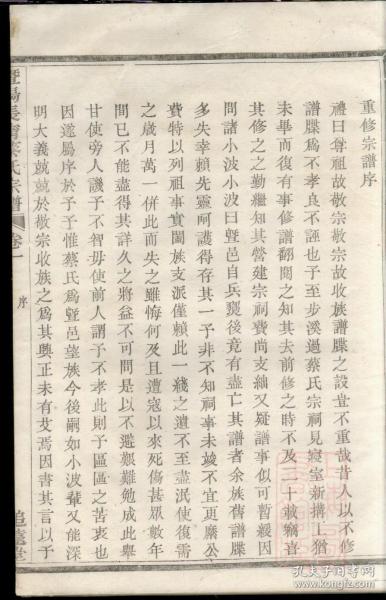 重修宗譜序
禮曰尊祖故敬宗敬宗故收族譜牒之設豈不重哉昔人以不修
譜牒爲不孝良不誣也予至步溪過蔡氏宗祠見寢室新搆工猶
未畢而復有事修譜翻閱之知其去前修之時不及二十載竊喜
其修之之勤繼知其營建宗祠費尚支絀又疑譜事似可暫緩因
問諸小波小波曰曁邑自兵燹後竟有盡亡其譜者余族舊譜牒
多失幸賴先靈呵護得存其一予非不知祠事未竣不宜更糜公
費特以列祖事實闔族支派僅賴此一綫之遺不至盡泯使復需
之歲月萬一併此而失之雖悔何及且遭寇以來死傷甚眾數年
間已不能盡得其詳久之將益不可問是以不濫艱難勉成此舉
甘使旁人譏予不智毋使前人謂予不孝此則予區區之苦衷也
因遂屬序於予予惟蔡氏爲曁邑望族今後嗣如小波輩又能深
明大義兢兢於敬宗收族之爲其興正未有艾焉因書其言以予
曁陽長甯蔡氏宗譜 卷一
序
追遠堂
孔夫子旧书网